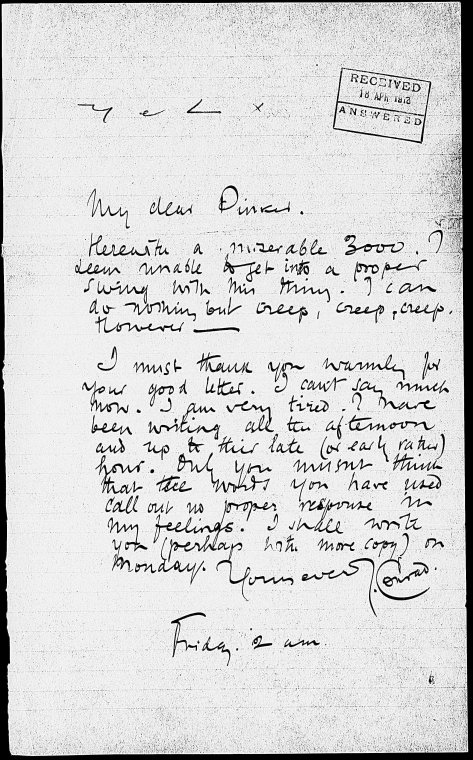 RECEIVED
18 APR 1913
ANSWERED
My dear Pinker.
Herewith a miserable 3000. I
seem unable to get into a proper
swing with this thing. I can
do nothing but creep, creep, creep.
However —
I must thank you warmly for
your good letter. I can't say much
now. I am very tired. I have
been writing all the afternoon
and up to this late (or early rather)
hour. Only you musnt think
that the words you have used
call out no proper response in
my feelings. I shall write
you (perhaps with more copy) on
Monday.
Yours ever J. Conrad.
Friday. 2 am.